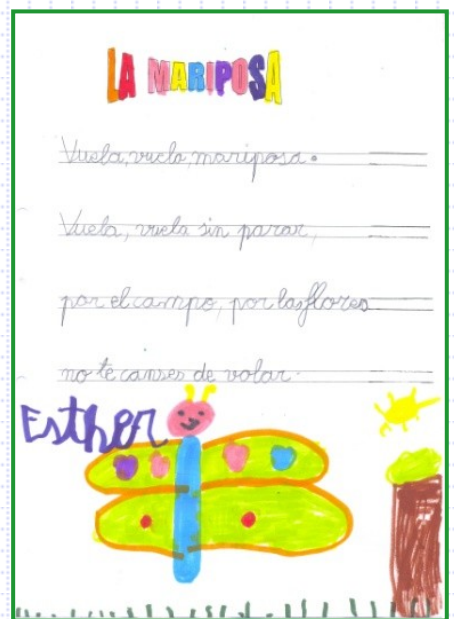 LA MARIPOSA
Vuela, vuela, mariposa.
Vuela, vuela sin parar,
por el campo, por las flores
no te canses de volar.
Esther